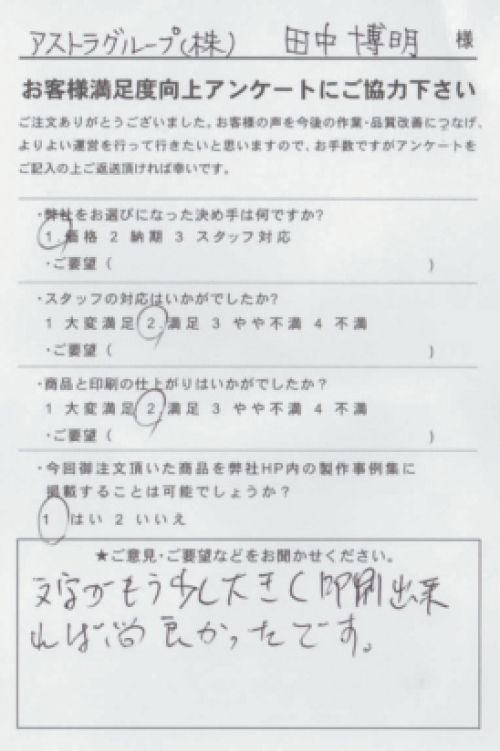 アストラグループ(株) 田中博明 様
お客様満足度向上アンケートにご協力下さい
ご注文ありがとうございました。お客様の声を今後の作業・品質改善につなげ、
よりよい運営を行って行きたいと思いますので、お手数ですがアンケートを
ご記入の上ご返送頂ければ幸いです。
・弊社をお選びになった決め手は何ですか?
1 価格 2 納期 3 スタッフ対応
・ご要望( )
・スタッフの対応はいかがでしたか?
1 大変満足 2 満足 3 やや不満 4 不満
・ご要望( )
・商品と印刷の仕上がりはいかがでしたか?
1 大変満足 2 満足 3 やや不満 4 不満
・ご要望( )
・今回御注文頂いた商品を弊社HP内の製作事例集に
掲載することは可能でしょうか?
1 はい 2 いいえ
★ご意見・ご要望などをお聞かせください。
文字がもう少し大きく印刷出来
れば尚良かったです。